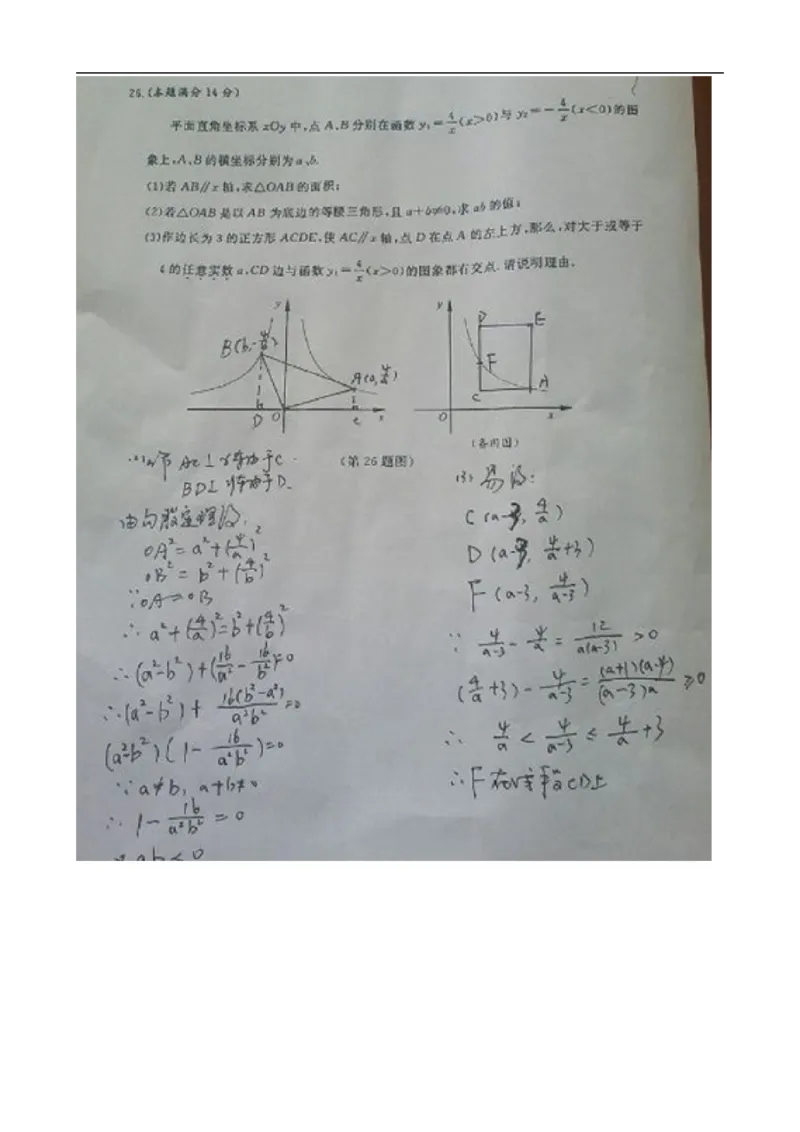 26.(本题满分14分)
平面直角坐标系xOy中,点A、B分别在函数y₁=4/x(x>0)与y₂=-4/x(x<0)的图
象上,A、B的横坐标分别为a、b.
(1)若AB∥x轴,求△OAB的面积;
(2)若△OAB是以AB为底边的等腰三角形,且a+b≠0,求ab的值;
(3)作边长为3的正方形ACDE,使AC∥x轴,点D在点A的左上方,那么,对大于或等于
4的任意实数a,CD边与函数y₁=4/x(x>0)的图象都有交点.请说明理由.
y
B(b,-4/b)
A(a,4/a)
D
O
c
x
y
D
E
F
C
A
O
x
(备用图)
(第26题图)
AC⊥x轴于C
BD⊥x轴于D.
由勾股定理得,
OA²=a²+(4/a)²
OB²=b²+(4/b)²
∵OA=OB
∴a²+(4/a)²=b²+(4/b)²
∴(a²-b²)+(16/a²-16/b²)=0
∴(a²-b²)+16(b²-a²)/a²b²=0
(a²-b²)(1-16/a²b²)=0
∵a≠b, a+b≠0
∴1-16/a²b²=0
ab<0
(3)易得:
C(a-3, 4/a)
D(a-3, 4/a+3)
F(a-3, 4/(a-3))
∵ 4/(a-3)-4/a=12/a(a-3)>0
(4/a+3)-4/(a-3)=(a+1)(a-4)/(a-3)a≥0
∴ 4/a<4/(a-3)≤4/a+3
∴F在线段CD上